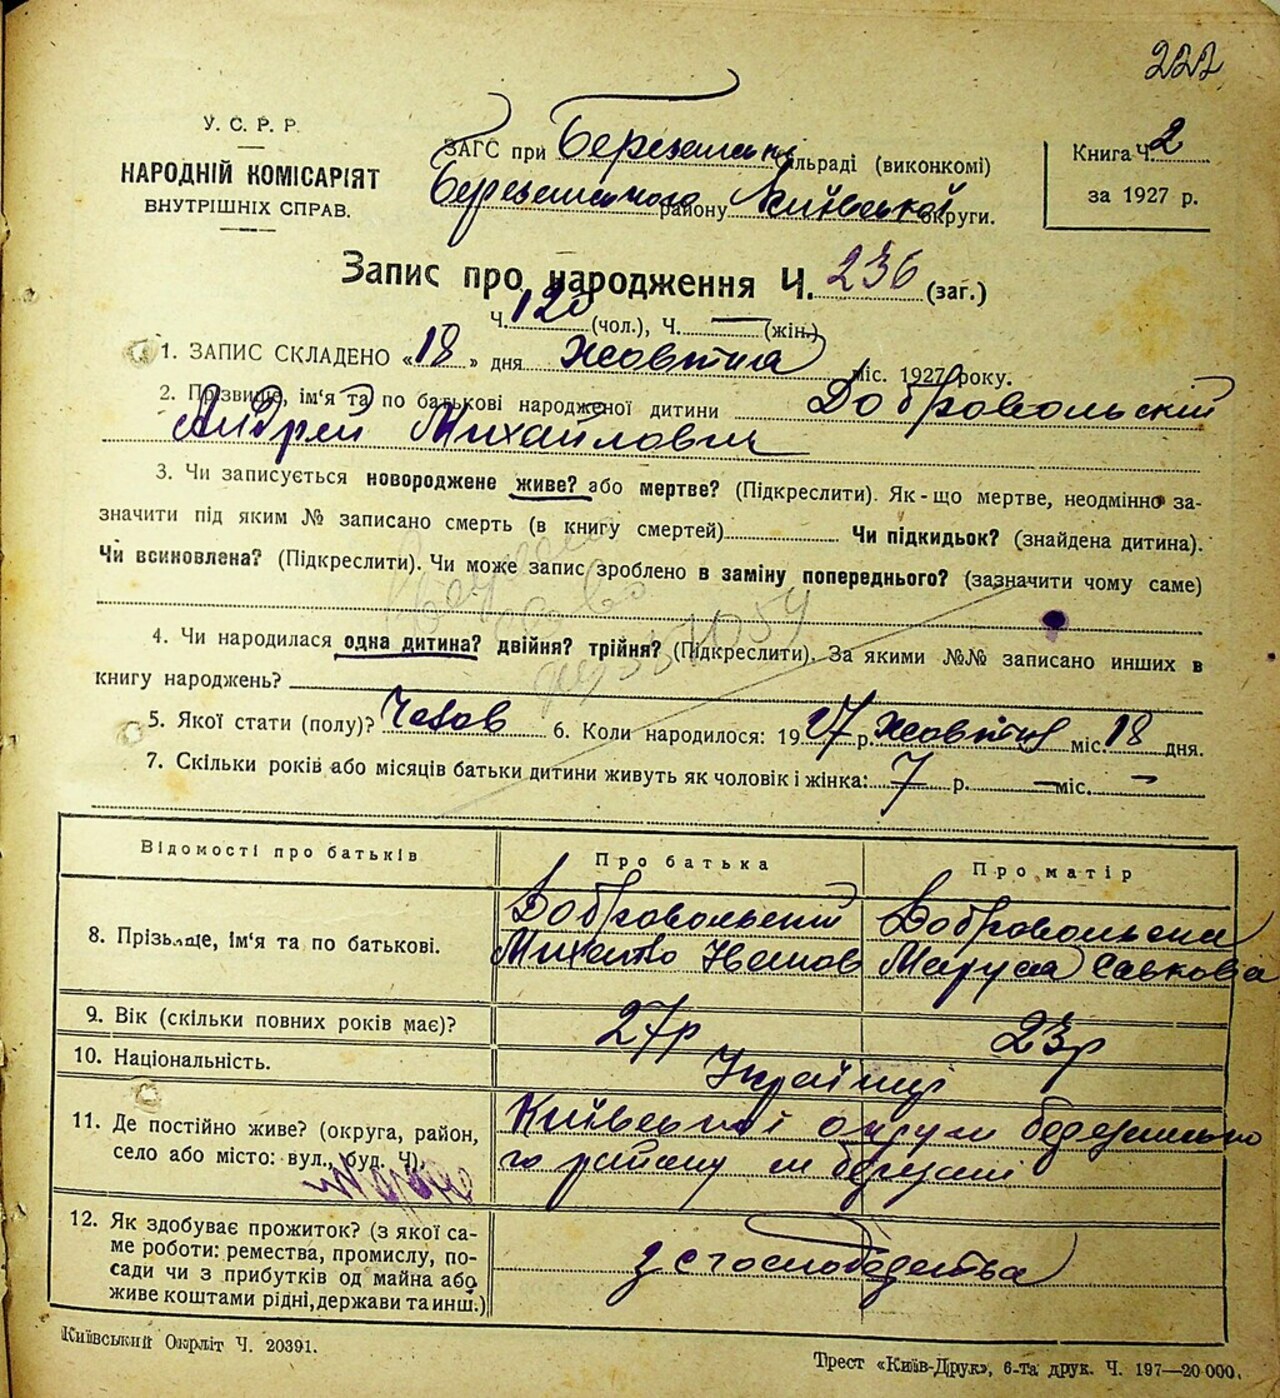 222
У. С. Р. Р.
НАРОДНІЙ КОМІСАРІЯТ
ВНУТРІШНІХ СПРАВ.
ЗАГС при Березанські сільраді (виконкомі)
Березанського району Київської округи.
Книга Ч. 2
за 1927 р.
Запис про народження Ч. 236 (заг.)
Ч. 120 (чол.), Ч. — (жін.)
1. ЗАПИС СКЛАДЕНО «18» дня Жовтня міс. 1927 року.
2. Прізвище, ім'я та по батькові народженої дитини Добровольскій
Андрей Михайлович
3. Чи записується новороджене живе? або мертве? (Підкреслити). Як-що мертве, неодмінно за-
значити під яким № записано смерть (в книгу смертей) Чи підкидьок? (знайдена дитина).
Чи всиновлена? (Підкреслити). Чи може запис зроблено в заміну попереднього? (зазначити чому саме)
4. Чи народилася одна дитина? двійня? трійня? (Підкреслити). За якими №№ записано инших в
книгу народжень?
5. Якої стати (полу)? Чолов 6. Коли народилося: 1927 р. Жовтня міс. 18 дня.
7. Скільки років або місяців батьки дитини живуть як чоловік і жінка: 7 р. — міс. —
Відомості про батьків Про батька Про матір
8. Прізвище, ім'я та по батькові. Добровольский Добровольска
Михайло Іванов Маруся Савковна
9. Вік (скільки повних років має)? 27р 23р
10. Національність. Українці
11. Де постійно живе? (округа, район, Київської округи березансько
село або місто: вул., буд. Ч). го району м березані
12. Як здобуває прожиток? (з якої са-
ме роботи: ремества, промислу, по-
сади чи з прибутків од майна або
живе коштами рідні, держави та инш.) з с господарства
Київський Окрліт Ч. 20391.
Трест «Київ-Друк», 6-та друк. Ч. 197—20 000.